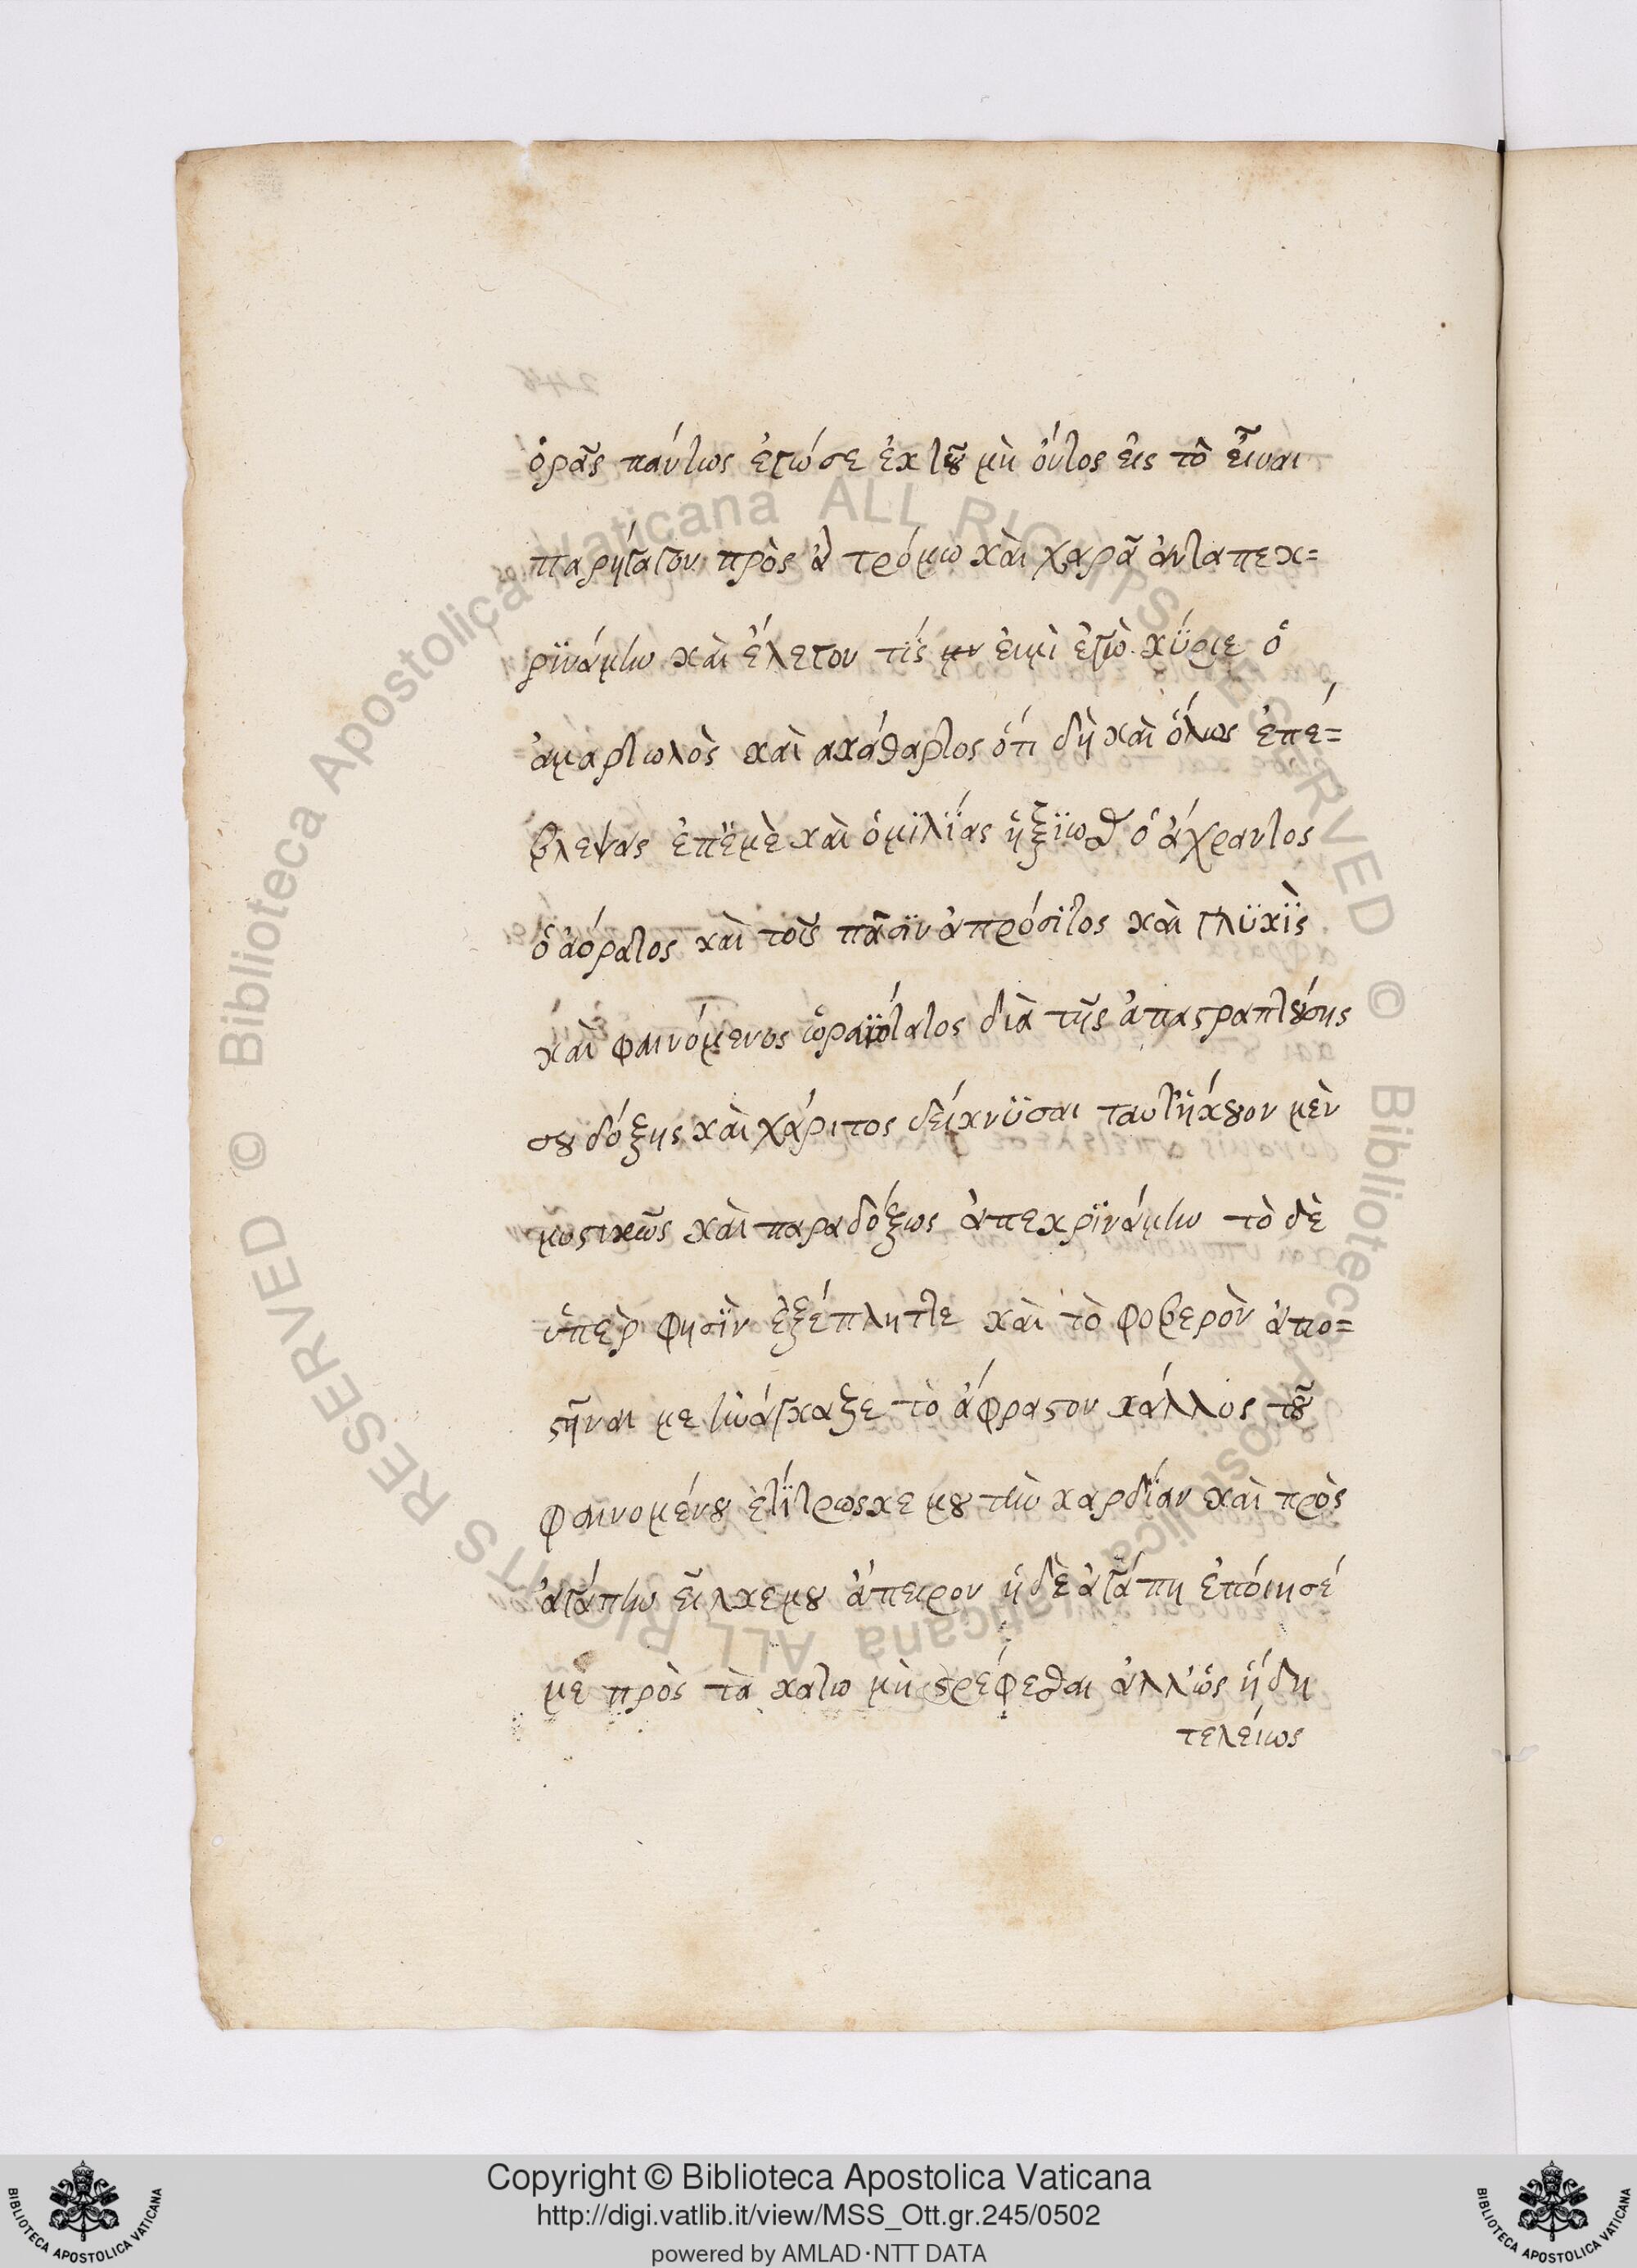 ὁρᾶς πάντως ἐγώ σε ἐκ τοῦ μὴ ὄντος εἰς τὸ εἶναι
παρήγαγον πρὸς ἃ τρόμω καὶ χαρᾶ ἀνταπεκ=
ρϊνάμην καὶ ἔλεγον τίς εἰμὶ ἐγὼ κύριε ὁ
ἁμαρτωλὸς καὶ ακάθαρτος ὅτι δὴ καὶ ὅλως ἐπέ=
βλεψας ἐπ' ἐμὲ καὶ ὁμϊλΐας ἠξϊωσ ὁ ἄχραντος
ὁ ἀόρατος καὶ τοῖς πᾶσϊν ἀπρόσϊτος καὶ γλϋκῒς
καὶ φαινόμενος ὡραϊότατος διὰ τῆς ἀπαστραπτούσης
σου δόξης καὶ χάριτος δείκνϋσαι ταυτὶ ἤκουον μὲν
μυστικῶς καὶ παραδόξως ἀπεκρϊνάμην τὸ δὲ
ὑπὲρ φησῒν ἐξέπληττε καὶ τὸ φοβερὸν ἀπο=
στῆναι με ἠνάγκαζε τὸ ἄφραστον κάλλος τοῦ
φαινομένου ἐτΐτρωσκε μου τὴν καρδΐαν καὶ πρὸς
ἀγάπην εἷλκε μου ἄπειρον ἡ δὲ ἀγάπη ἐποίησέ
με πρὸς τὰ κατω μὴ στρέφεσθαι ἀλλ' ὡς ἤδη
τελείως
Copyright © Biblioteca Apostolica Vaticana
http://digi.vatlib.it/view/MSS_Ott.gr.245/0502
powered by AMLAD·NTT DATA
BIBLIOTECA APOSTOLICA VATICANA
BIBLIOTECA APOSTOLICA VATICANA
© Biblioteca Apostolica Vaticana ALL RIGHTS RESERVED
© Biblioteca Apostolica Vaticana ALL RIGHTS RESERVED